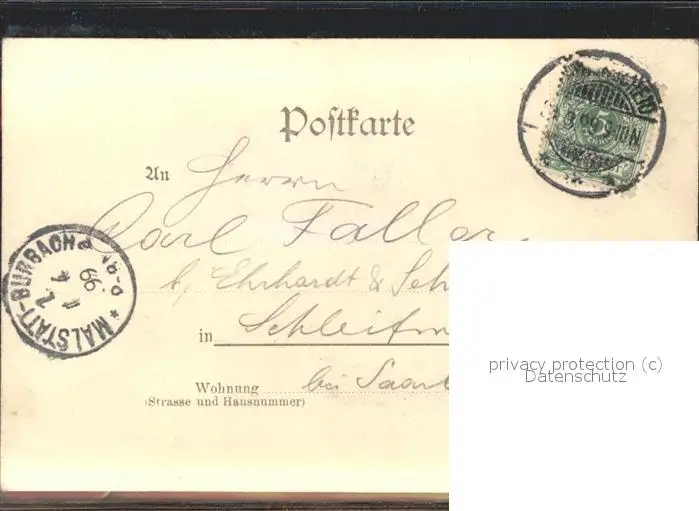 Postkarte
5
9-10N
An Herrn
Carl Faller
b/ Ehrhardt & Seh
MALSTATT-BURBACH
99
in Schleifm
privacy protection (c)
Datenschutz
Wohnung bei Saar
(Strasse und Hausnummer)